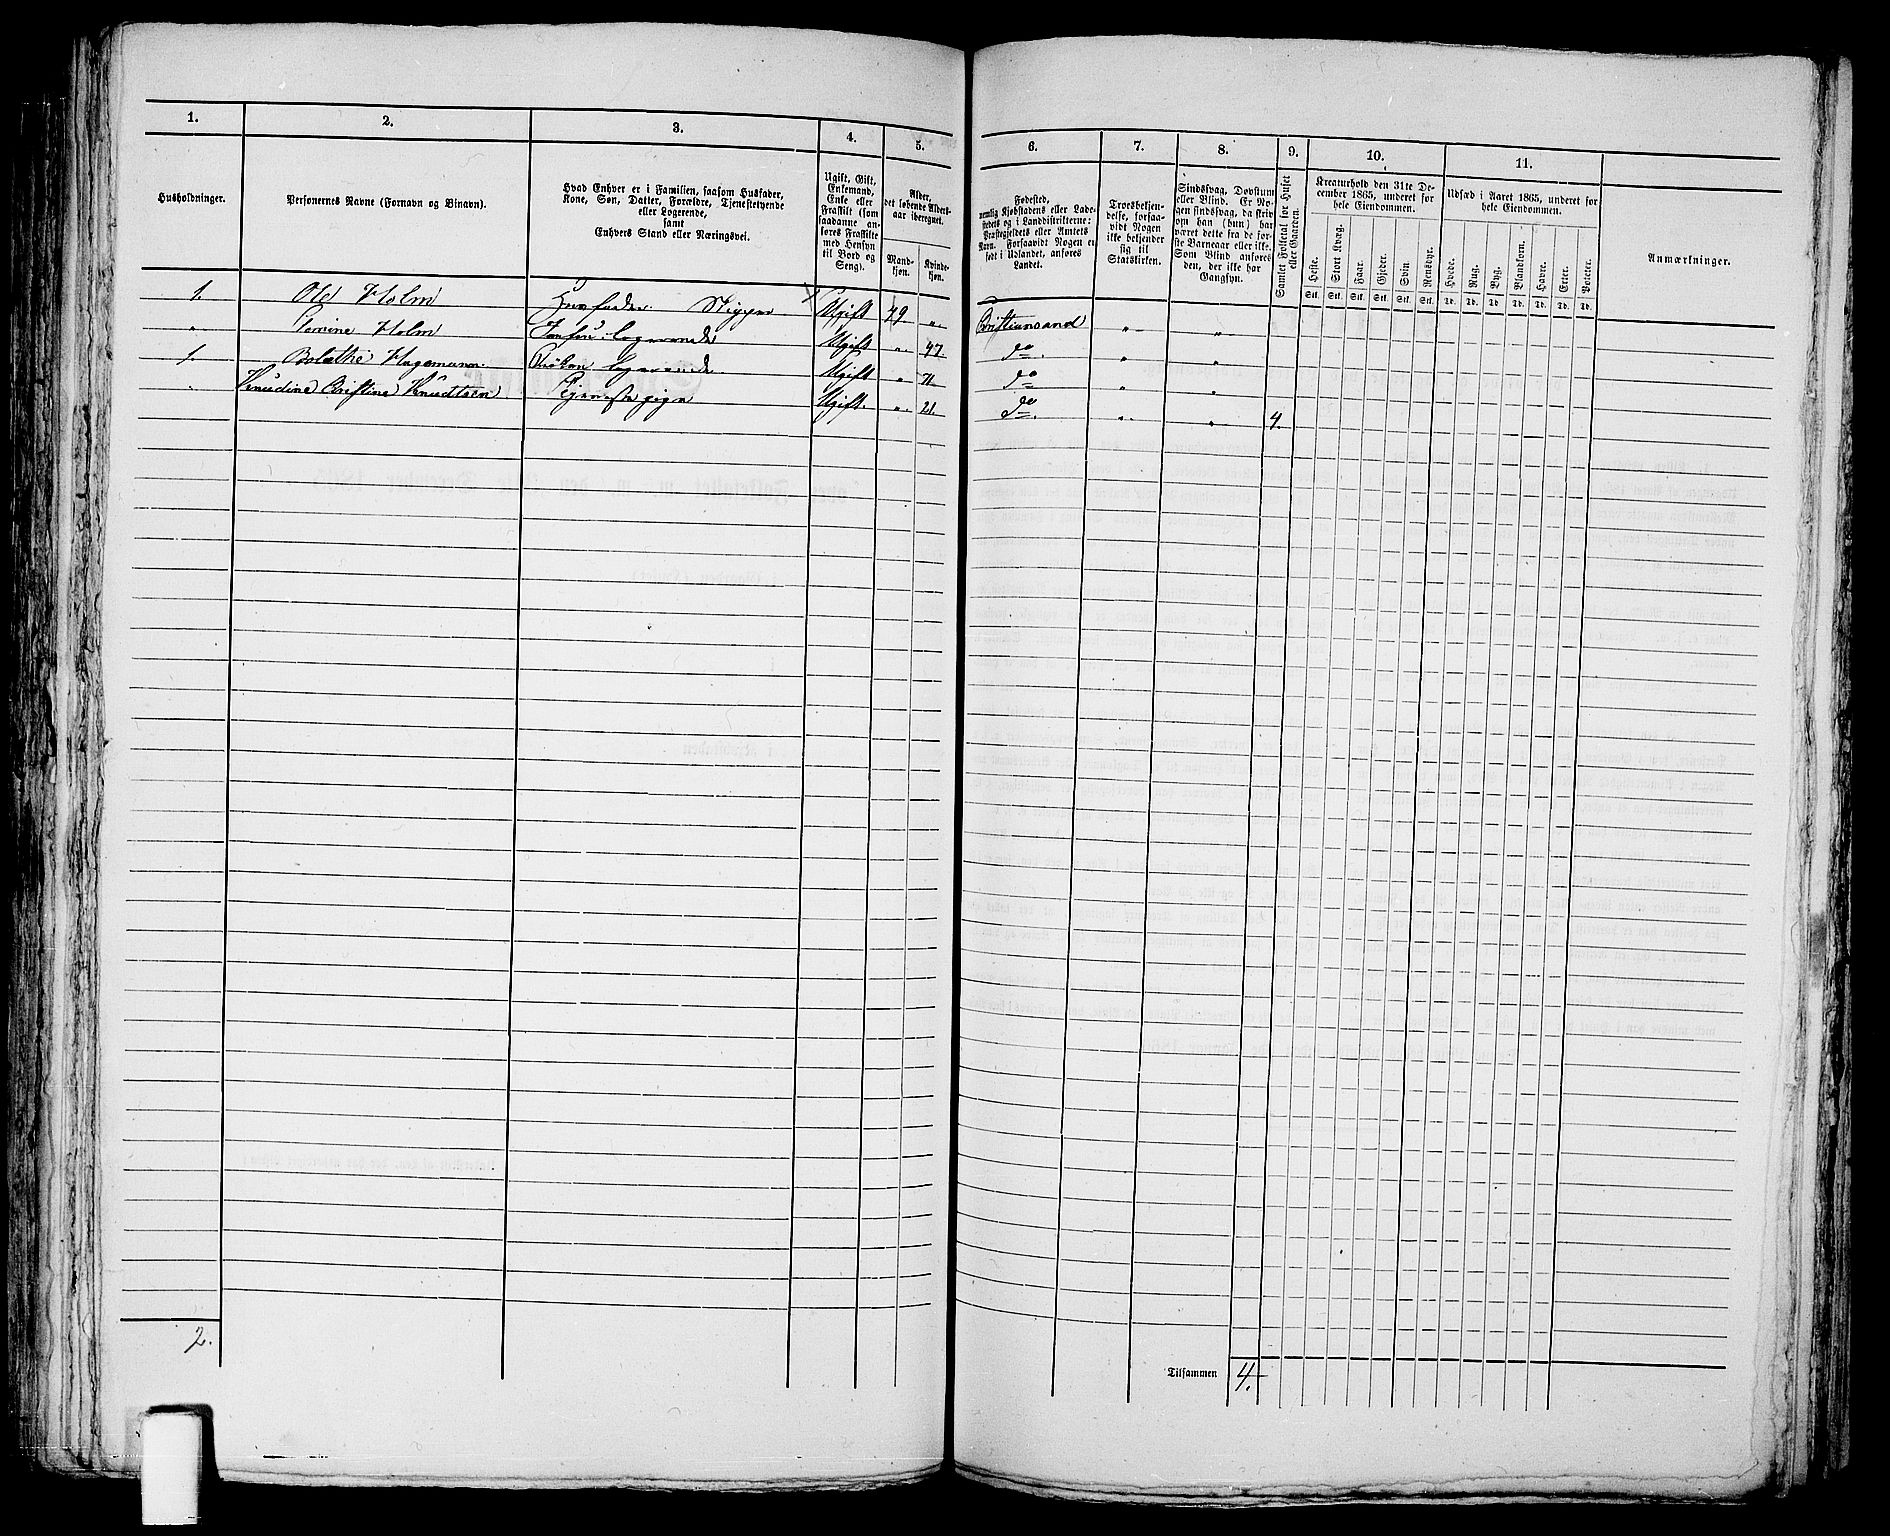 1.
2.
3.
4.
5.
6.
7.
8.
9.
10.
11.
Husholdninger.
Personernes Navne (Fornavn og Binavn).
Hvad Enhver er i Familien, saasom Husfader,
Kone, Søn, Datter, Forældre, Tjenestetyende
eller Logerende,
samt
Enhvers Stand eller Næringsvei.
Ugift, Gift,
Enkemand,
Enke eller
Fraskilt (som
saadanne an-
føres Fraskilte
med Hensyn
til Bord og
Seng).
Alder,
det løbende Alders-
aar iberegnet.
Mand-
kjøn.
Kvinde-
kjøn.
Fødested,
nemlig Kjøbstadens eller Lade-
stedets og i Landdistrikterne:
Præstegjeldets eller Amtets
Navn. Forsaavidt Nogen er
født i Udlandet, anføres
Landet.
Troesbekjen-
delse, forsaa-
vidt Nogen
ikke bekjender
sig til
Statskirken.
Sindssvag, Døvstum
eller Blind. Er No-
gen sindssvag, da skriv
om han (hun) har
været dette fra de før-
ste Barneaar eller ikke.
Som Blind anføres
den, der ikke har
Gangsyn.
Samlet Folketal for Huset
eller Gaarden.
Kreaturhold den 31te De-
cember 1865, underet for
hele Eiendommen.
Heste.
Stort Kvæg.
Faar.
Gjeder.
Svin.
Rensdyr.
Stk. Stk. Stk. Stk. Stk. Stk.
Udsæd i Aaret 1865, underet for
hele Eiendommen.
Hvede.
Rug.
Byg.
Blandkorn.
Havre.
Erter.
Poteter.
Td. Td. Td. Td. Td. Td. Td.
Anmærkninger.
1. Ole Holm Husfader. Skipper Ugift 49 „ Christiansand „ „
„ Holm Jomfru. logerende Ugift „ 47. do „ „
1. Bolethe Hagemann logerende Ugift „ 71 do „ „
„ Knudine Christine Knudtsen Tjenestepige Ugift. „ 21. do. „ „ 4.
2.
Tilsammen 4.